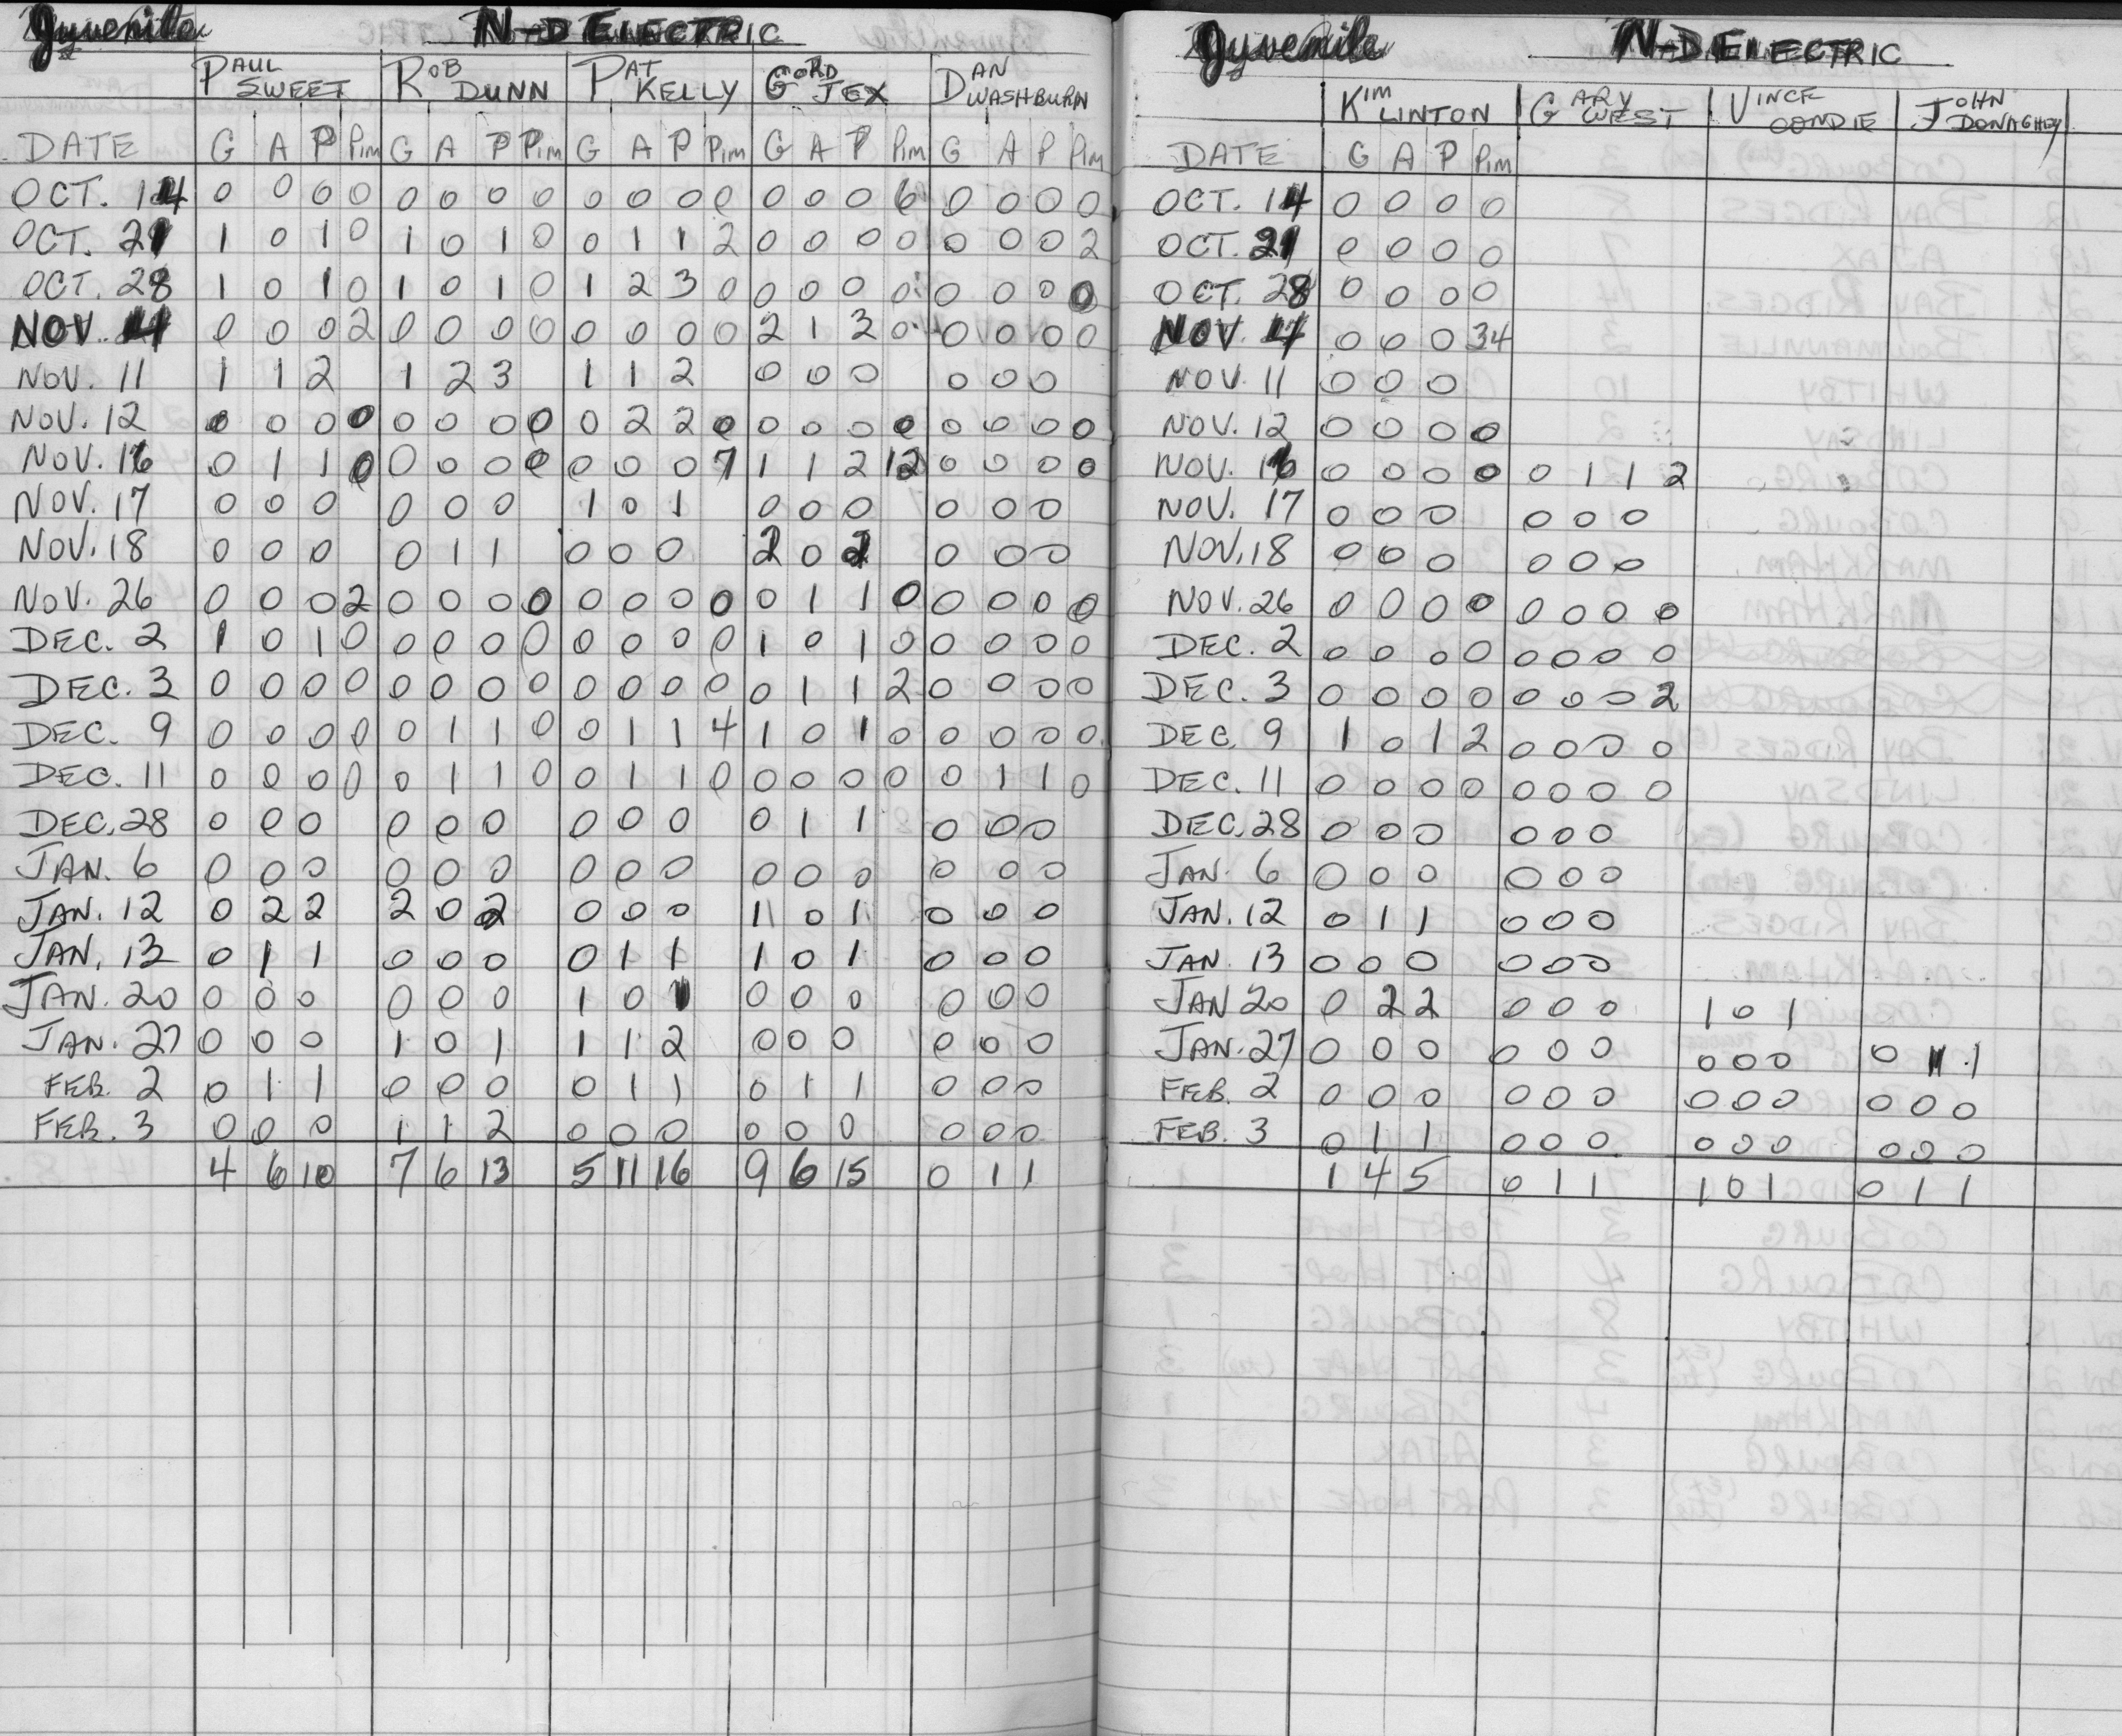 Juvenile N-D ELECTRIC
PAUL SWEET ROB DUNN PAT KELLY GORD JEX DAN WASHBURN
DATE G A P Pim G A P Pim G A P Pim G A P Pim G A P Pim
OCT. 14 0 0 0 0 0 0 0 0 0 0 0 0 0 0 0 6 0 0 0 0
OCT. 21 1 0 1 0 1 0 1 0 0 1 1 2 0 0 0 0 0 0 0 2
OCT. 28 1 0 1 0 1 0 1 0 1 2 3 0 0 0 0 0 0 0 0 0
NOV. 4 0 0 0 2 0 0 0 0 0 0 0 0 2 1 3 0 0 0 0 0
NOV. 11 1 1 2 1 2 3 1 1 2 0 0 0 0 0 0
NOV. 12 0 0 0 0 0 0 0 0 0 2 2 0 0 0 0 0 0 0 0 0
NOV. 16 0 1 1 0 0 0 0 0 0 0 0 7 1 1 2 12 0 0 0 0
NOV. 17 0 0 0 0 0 0 1 0 1 0 0 0 0 0 0
NOV. 18 0 0 0 0 1 1 0 0 0 2 0 2 0 0 0
NOV. 26 0 0 0 2 0 0 0 0 0 0 0 0 0 1 1 0 0 0 0 0
DEC. 2 1 0 1 0 0 0 0 0 0 0 0 0 1 0 1 0 0 0 0 0
DEC. 3 0 0 0 0 0 0 0 0 0 0 0 0 0 1 1 2 0 0 0 0
DEC. 9 0 0 0 0 0 1 1 0 0 1 1 4 1 0 1 0 0 0 0 0
DEC. 11 0 0 0 0 0 1 1 0 0 1 1 0 0 0 0 0 0 1 1 0
DEC. 28 0 0 0 0 0 0 0 0 0 0 1 1 0 0 0
JAN. 6 0 0 0 0 0 0 0 0 0 0 0 0 0 0 0
JAN. 12 0 2 2 2 0 2 0 0 0 1 0 1 0 0 0
JAN. 13 0 1 1 0 0 0 0 1 1 1 0 1 0 0 0
JAN. 20 0 0 0 0 0 0 1 0 1 0 0 0 0 0 0
JAN. 27 0 0 0 1 0 1 1 1 2 0 0 0 0 0 0
FEB. 2 0 1 1 0 0 0 0 1 1 0 1 1 0 0 0
FEB. 3 0 0 0 1 1 2 0 0 0 0 0 0 0 0 0
4 6 10 7 6 13 5 11 16 9 6 15 0 1 1
Juvenile N-D ELECTRIC
KIM LINTON GARY WEST VINCE CONDIE JOHN DONAGHEY
DATE G A P Pim
OCT. 14 0 0 0 0
OCT. 21 0 0 0 0
OCT. 28 0 0 0 0
NOV. 4 0 0 0 34
NOV. 11 0 0 0
NOV. 12 0 0 0 0
NOV. 16 0 0 0 0 0 1 1 2
NOV. 17 0 0 0 0 0 0
NOV. 18 0 0 0 0 0 0
NOV. 26 0 0 0 0 0 0 0 0
DEC. 2 0 0 0 0 0 0 0 0
DEC. 3 0 0 0 0 0 0 0 2
DEC. 9 1 0 1 2 0 0 0 0
DEC. 11 0 0 0 0 0 0 0 0
DEC. 28 0 0 0 0 0 0
JAN. 6 0 0 0 0 0 0
JAN. 12 0 1 1 0 0 0
JAN. 13 0 0 0 0 0 0
JAN 20 0 2 2 0 0 0 1 0 1
JAN. 27 0 0 0 0 0 0 0 0 0 0 1 1
FEB. 2 0 0 0 0 0 0 0 0 0 0 0 0
FEB. 3 0 1 1 0 0 0 0 0 0 0 0 0
1 4 5 0 1 1 1 0 1 0 1 1